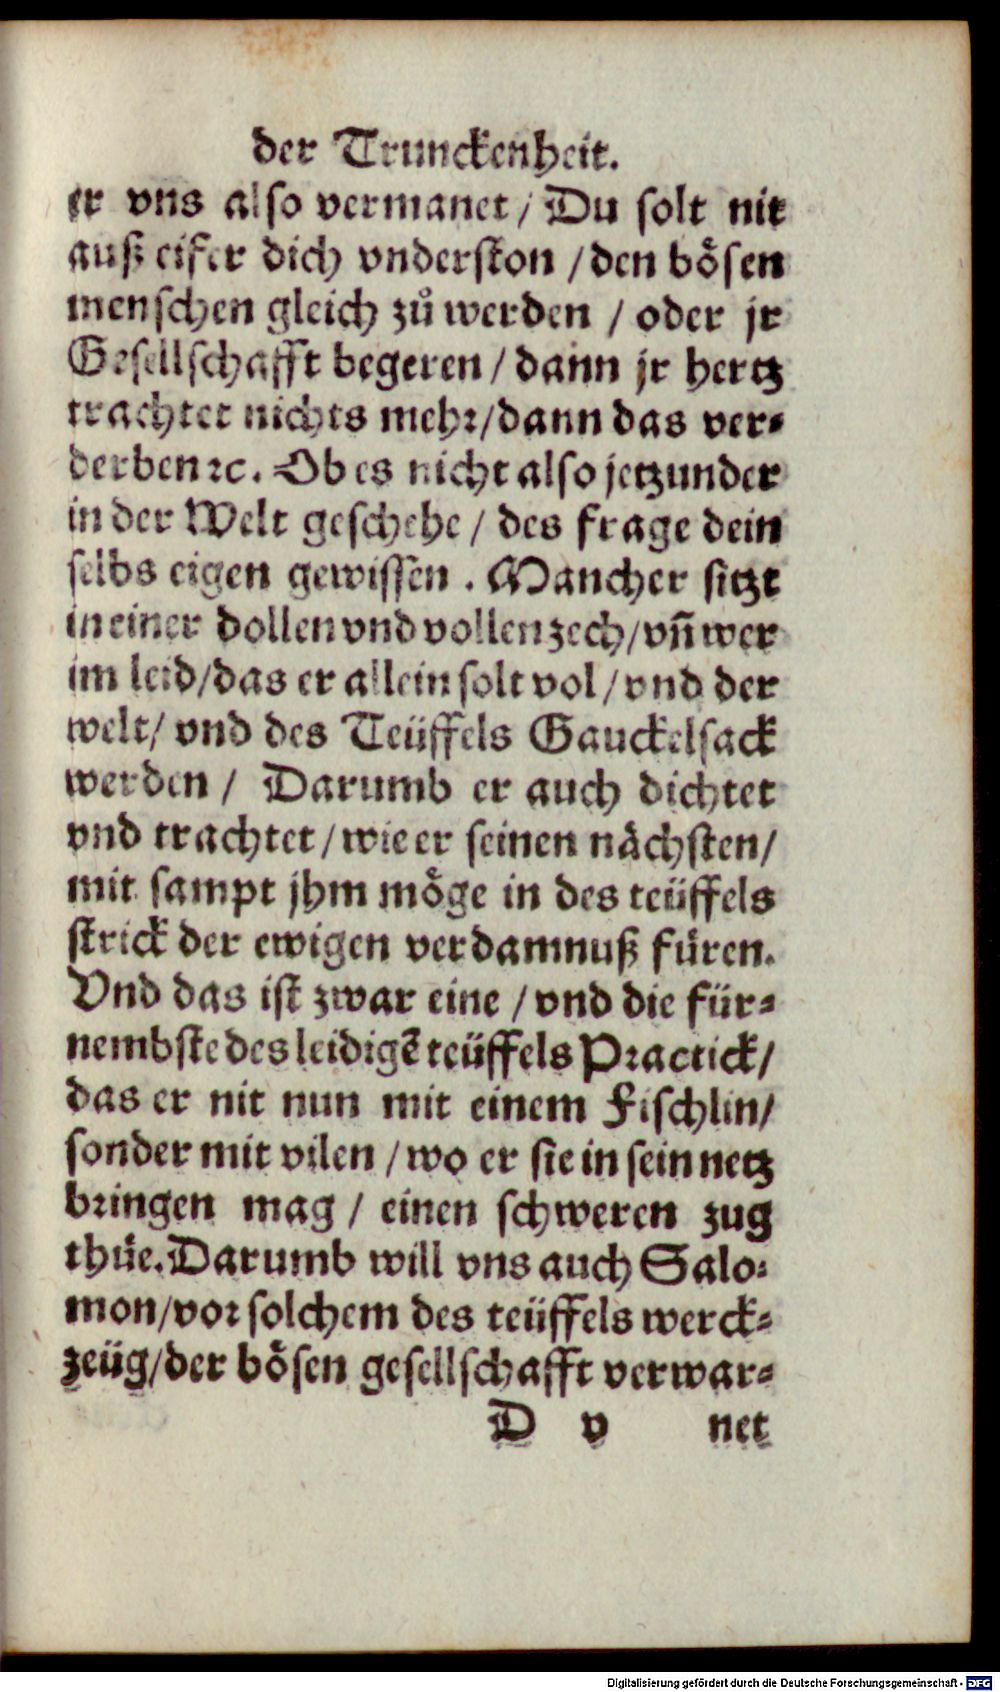 der Trunckenheit.
er vns also vermanet / Du solt nit
auß eifer dich vnderston / den bösen
menschen gleich zů werden / oder jr
Gesellschafft begeren / dann jr hertz
trachtet nichts mehr / dann das ver⸗
derben ꝛc. Ob es nicht also jetzunder
in der Welt geschehe / des frage dein
selbs eigen gewissen. Mancher sitzt
in einer dollen vnd vollen zech / vñ wer
im leid / das er allein solt vol / vnd der
welt / vnd des Teüffels Gauckelsack
werden / Darumb er auch dichtet
vnd trachtet / wie er seinen nåchsten /
mit sampt jhm möge in des teüffels
strick der ewigen verdamnuß füren.
Vnd das ist zwar eine / vnd die für⸗
nembste des leidigē teüffels Practick /
das er nit nun mit einem Fischlin /
sonder mit vilen / wo er sie in sein netz
bringen mag / einen schweren zug
thüe. Darumb will vns auch Salo⸗
mon / vor solchem des teüffels werck⸗
zeüg / der bösen gesellschafft verwar⸗
D v net
Digitalisierung gefördert durch die Deutsche Forschungsgemeinschaft - DFG